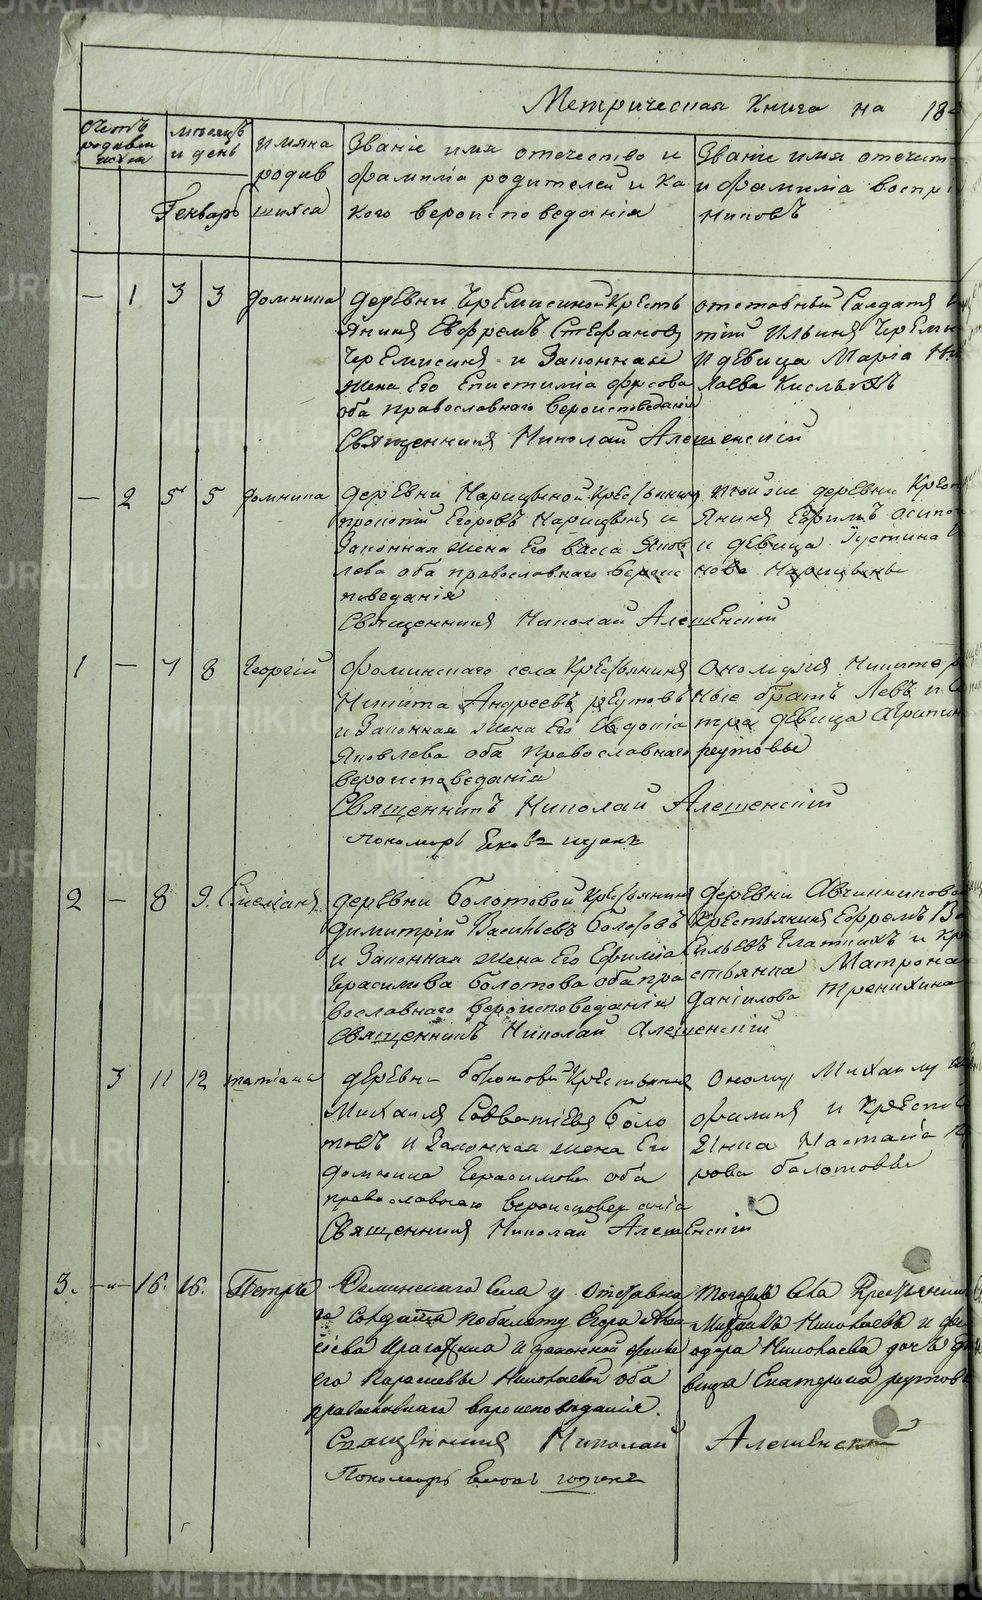 Метрическая Книга на 18
Счетъ родившихся
мѣсяцъ и день
Генварь
имяна родившихся
Званіе имя отечество и фамиліа родителей и какого вероисповеданія
Званіе имя отечест
и фамиліа воспрі
никовъ
— 1 3 3 домнина
деревни Черемисиной Кресть
янинъ Евфремъ Стефановъ
Черемисинъ и Законная
жена Его Епистиміа
оба православнаго вероисповеданія
Священникъ Николай Алешенскій
отставный Солдатъ
Ильинъ Череми
и девица Маріа Ни
лаева Кислыхъ
— 2 5 5 домнина
деревни Марицыной Крестьянинъ
прокопій Егоровъ Марицынъ и
Законная жена Его васса Яков
лева оба православнаго вероис
поведанія
Священникъ Николай Алешенскій
тойже деревни Крест
янинъ осипо
и девица Іустина
нова Марицыны
1 — 7 8 Георгій
Фоминскаго села Крестьянинъ
Никита Андреевъ реутовъ
и Законная жена Его Евдокіа
Яковлева оба православнаго
вероисповеданіи
Священникъ Николай Алешенскій
Пономорь
братъ Левъ и Се
тра девица Агрипин
реутовы
2 — 8 9.
деревни Болотовой Крестьянинъ
Димитрій Васильевъ Болотовъ
и Законная жена Его Ефиміа
Герасимова Болотова оба пра
вославнаго вероисповеданіи
Священникъ Николай Алешенскій
деревни Овчинниковой
Крестьянинъ Ефремъ Ва
сильевъ Глаткихъ и Кр
стьянка Матрона
Даніилова Тренихина
3 11 12 татіана
деревни болотовой Крестьянинъ
Михаилъ Савватіевъ Боло
товъ и Законная жена Его
домнина Герасимова оба
православнаго вероисповеданіа
Священникъ Николай Алешенскій
Оному Михаилу
и Крестья
янка Настасіа
рова болотовы
3. —"— 16. 16. Петръ
Фоминскаго Села у Отставна
го Солдата побилету Егора
и законной жены
его Параскевы Николаевой оба
православнаго вероисповеданія.
Священникъ Николай Алешенскій
Пономорь
тогожъ села Крестьянинъ
Михаилъ Николаевъ и Фе
одора Николаева дочь де
вица Екатерина реутов
METRIKI.GASO-URAL.RU